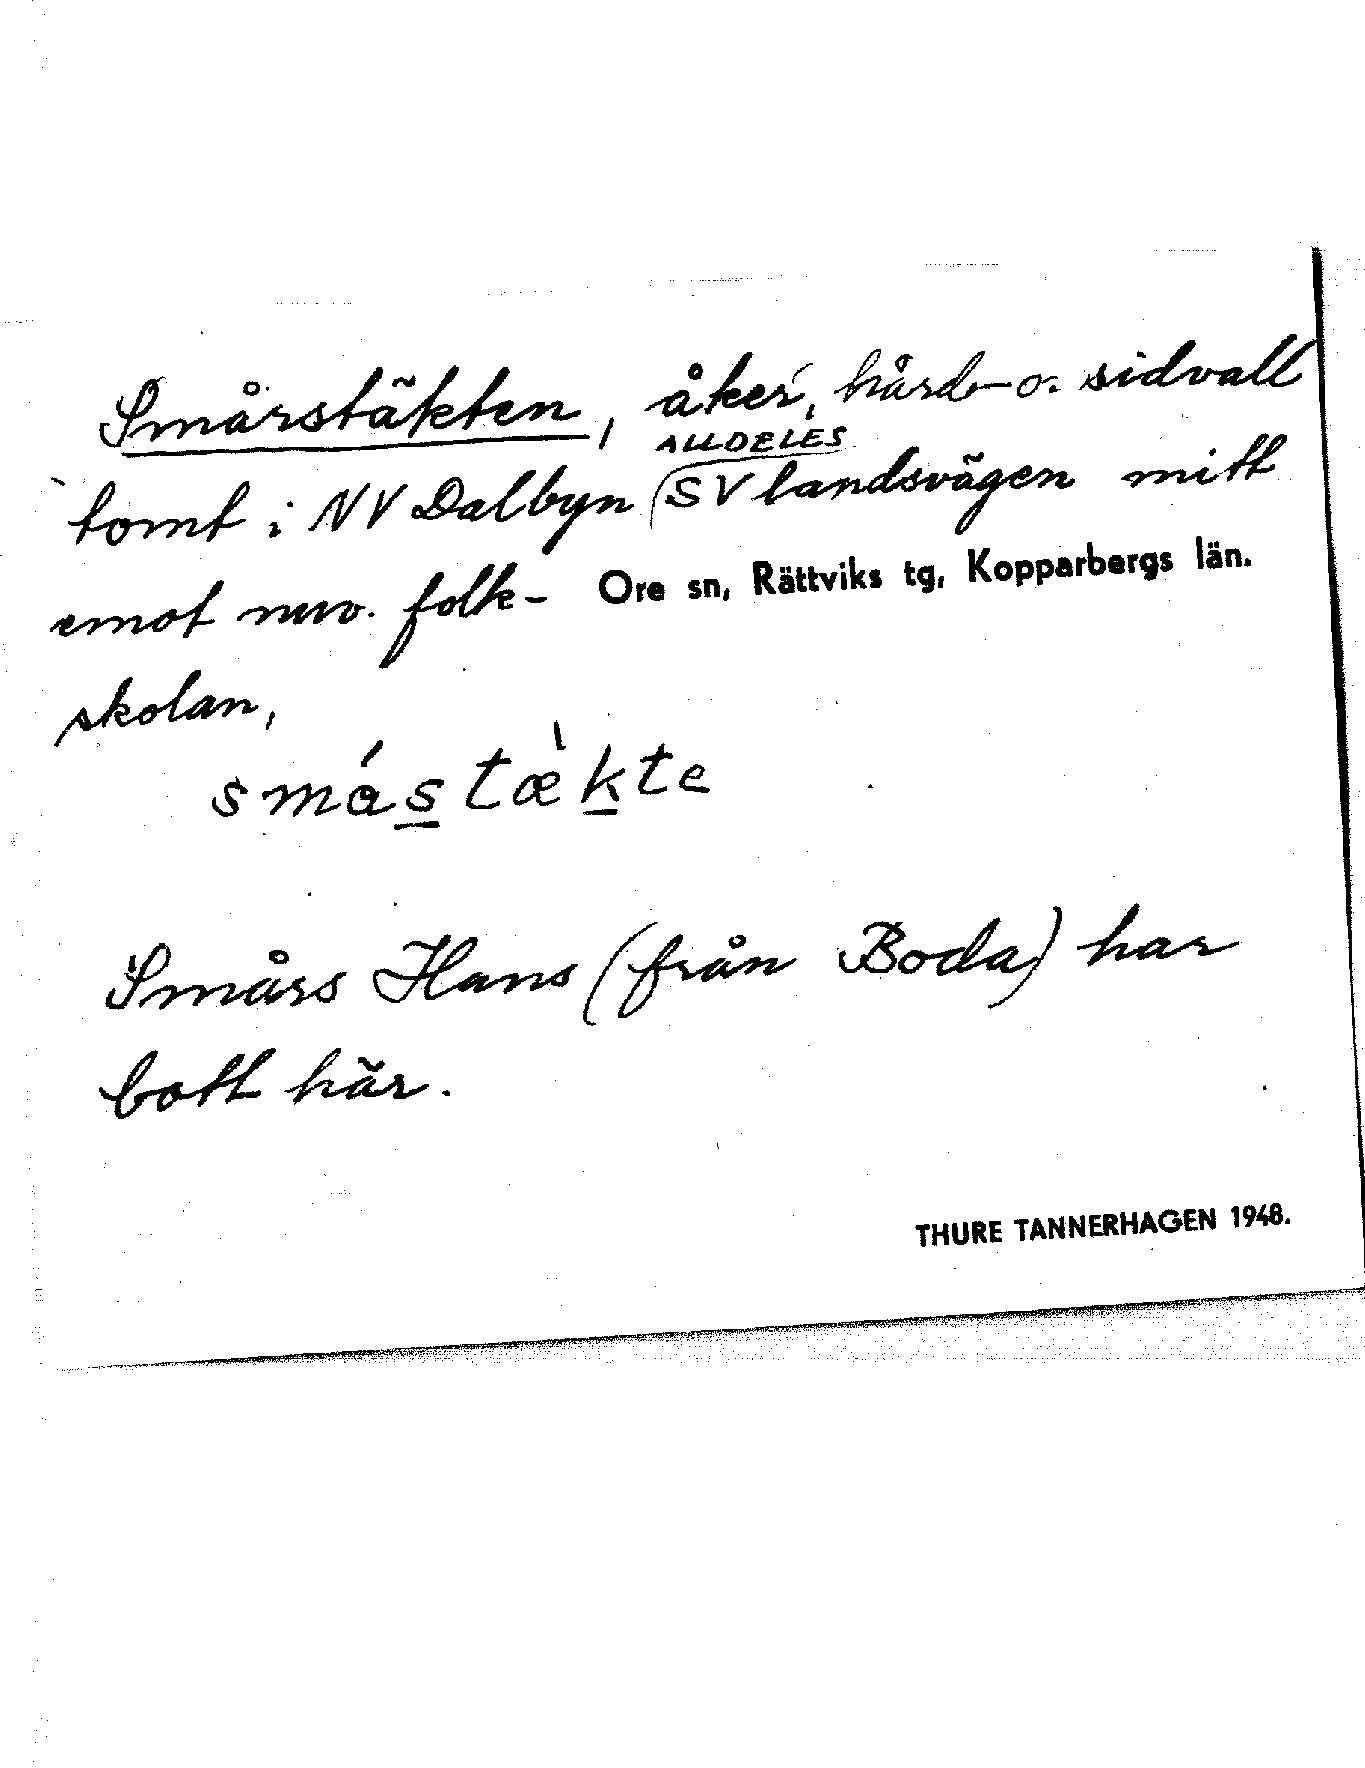 Smårstäkten, åker, hård- o. sidvall
ALLDELES
tomt i NV Dalbyn (SV landsvägen mitt
emot nuv. folk- Ore sn, Rättviks tg, Kopparbergs län.
skolan,
smástæ̀kte
Smårs Hans (från Boda) har
bott här.
THURE TANNERHAGEN 1948.